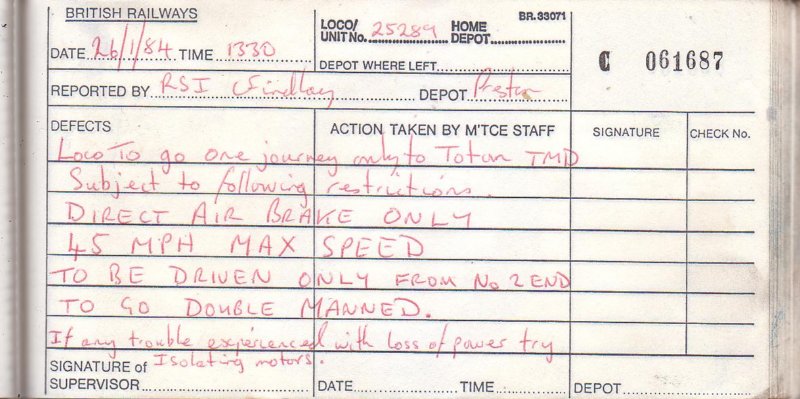 BRITISH RAILWAYS
BR.33071
DATE 26/1/84 TIME 1330
LOCO/ UNIT No. 25289 HOME DEPOT
DEPOT WHERE LEFT
C 061687
REPORTED BY RSI Findlay DEPOT Preston
DEFECTS ACTION TAKEN BY M'TCE STAFF SIGNATURE CHECK No.
Loco To go one journey only to Toton TMD
Subject to following restrictions.
DIRECT AIR BRAKE ONLY
45 MPH MAX SPEED
TO BE DRIVEN ONLY FROM No 2 END
TO GO DOUBLE MANNED.
If any trouble experienced with loss of power try
Isolating motors.
SIGNATURE of SUPERVISOR DATE TIME DEPOT